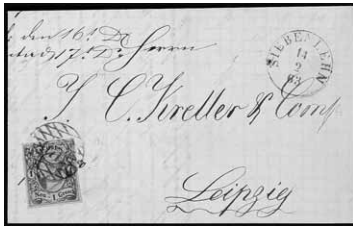 den 16t
17t Herrn
SIEBENLEHN
14
2
63
J. C. Kreller & Comp
Leipzig